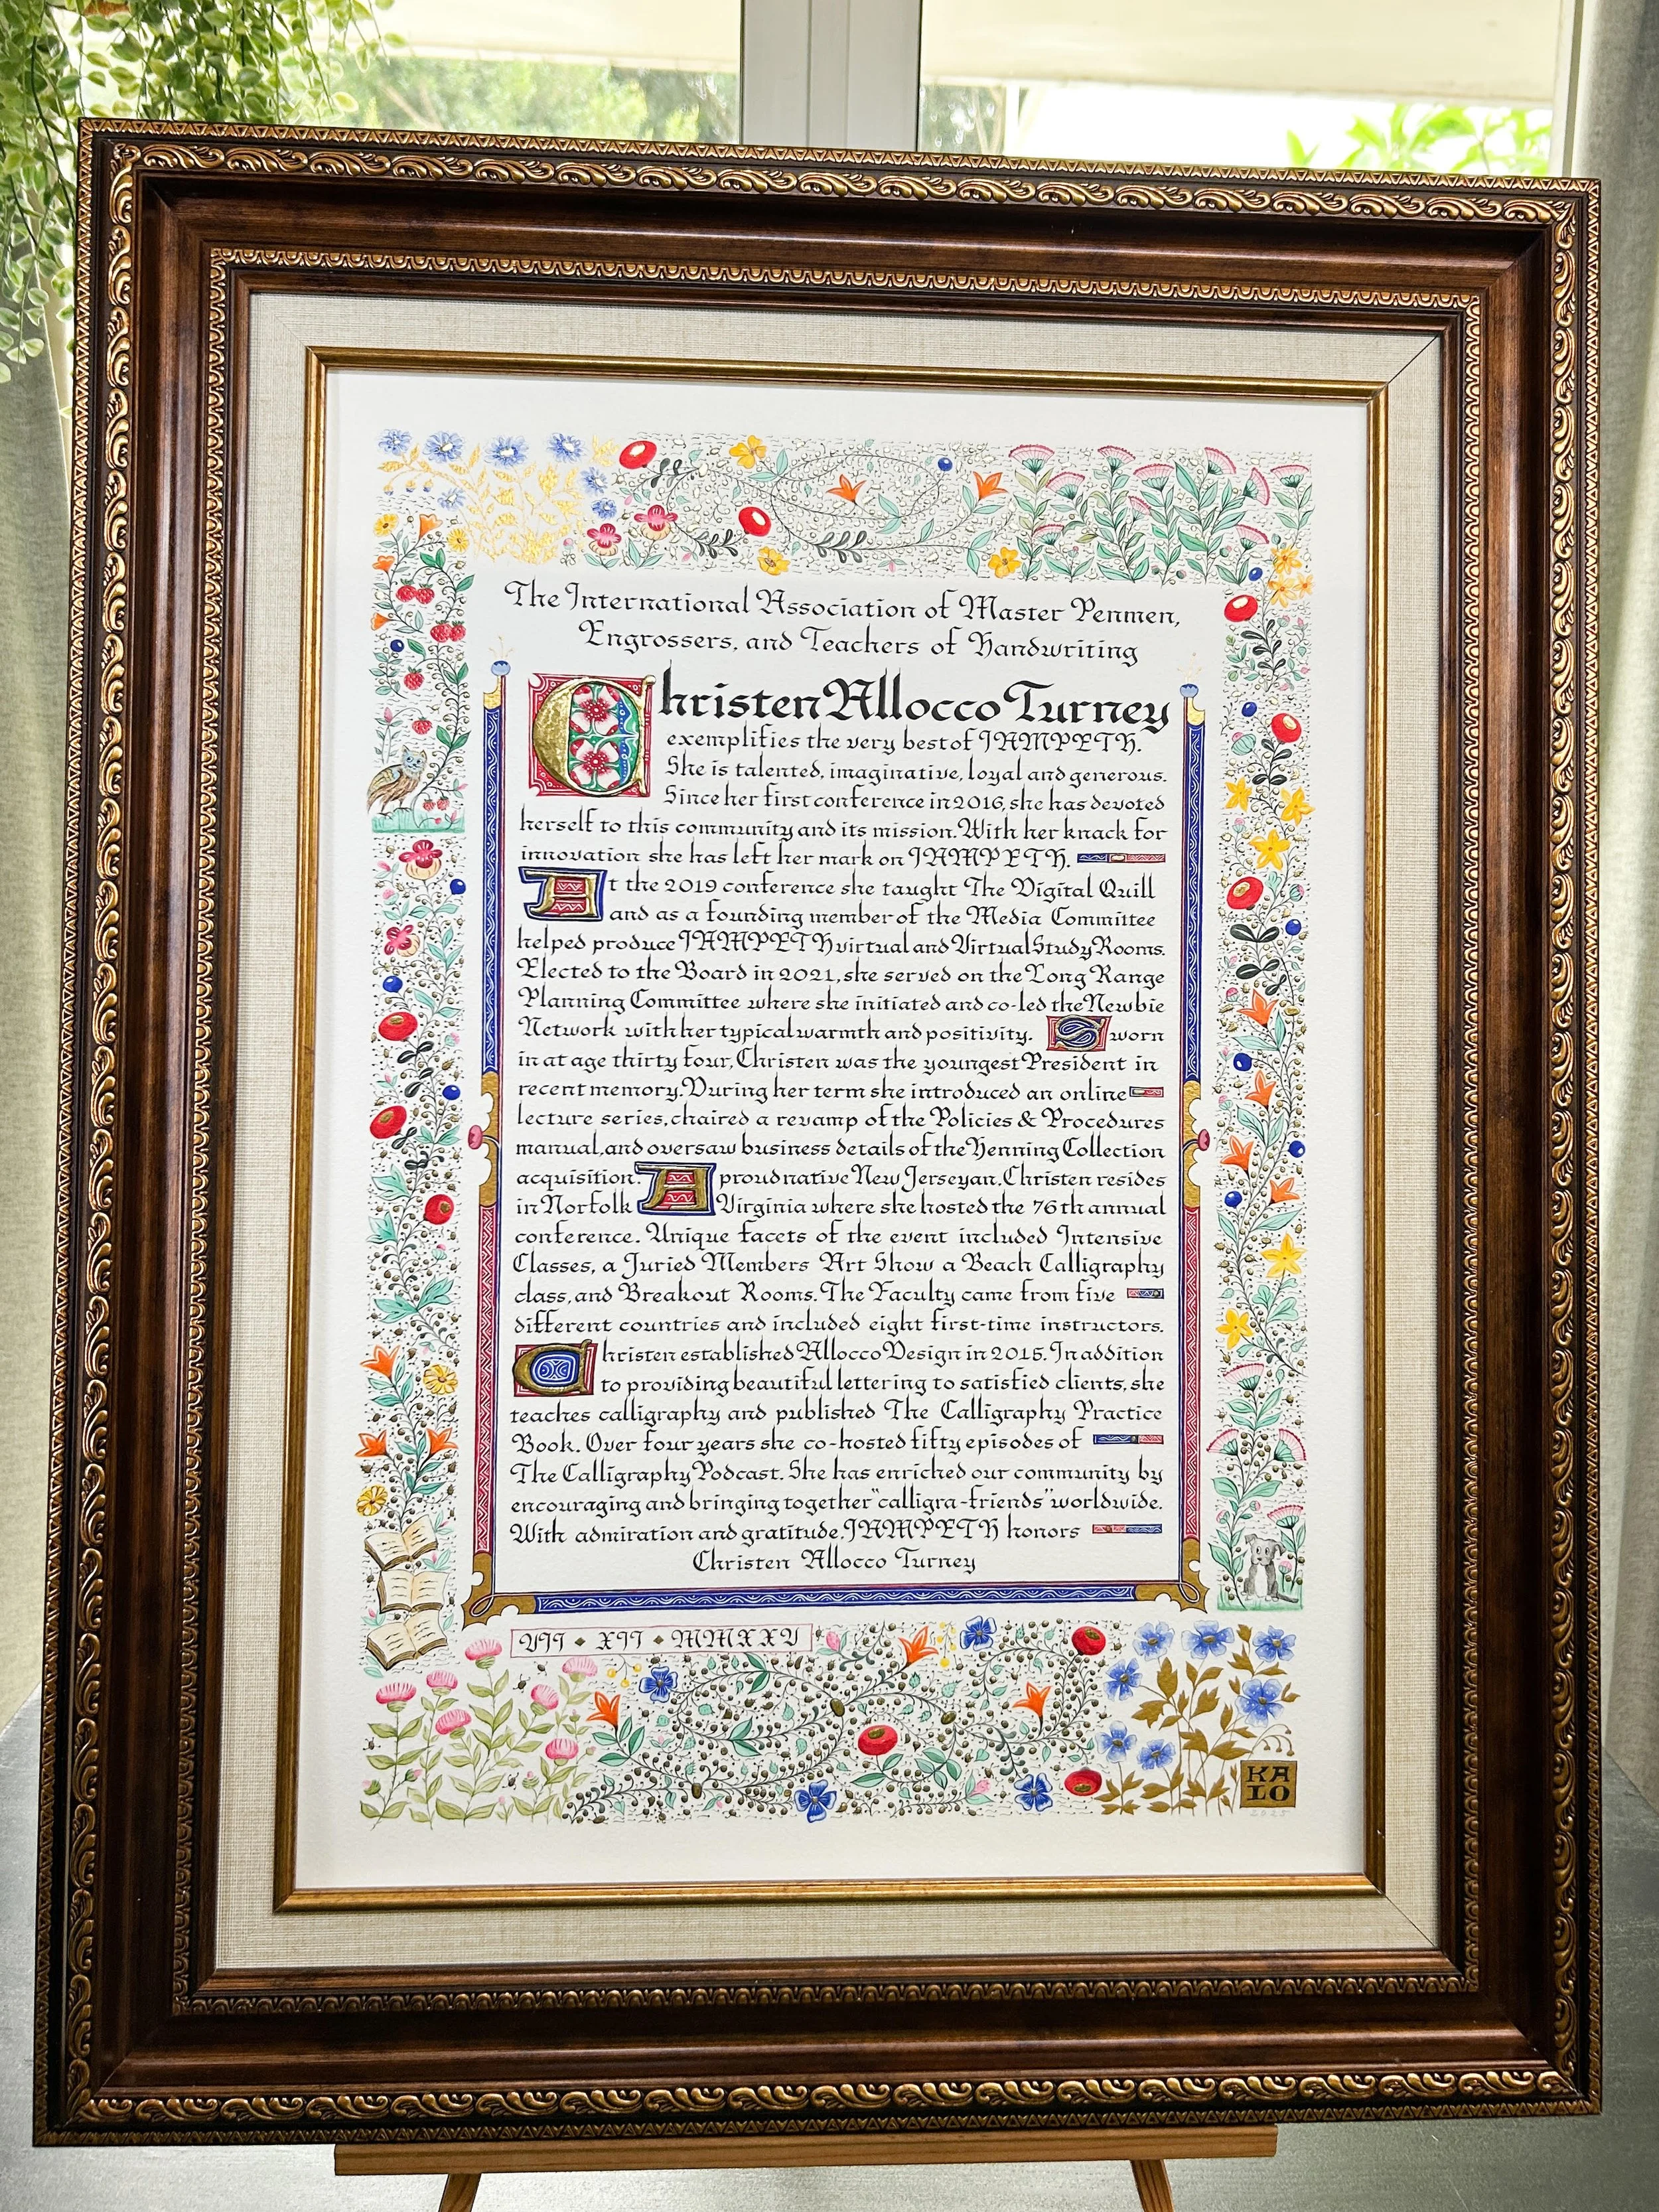 The International Association of Master Penmen,
Engrossers, and Teachers of Handwriting
Christen Allocco Turney
exemplifies the very best of IAMPETH.
She is talented, imaginative, loyal and generous.
Since her first conference in 2016, she has devoted
herself to this community and its mission. With her knack for
innovation she has left her mark on IAMPETH.
At the 2019 conference she taught The Digital Quill
and as a founding member of the Media Committee
helped produce IAMPETH virtual and Virtual Study Rooms.
Elected to the Board in 2021, she served on the Long Range
Planning Committee where she initiated and co-led the Newbie
Network with her typical warmth and positivity. Sworn
in at age thirty four, Christen was the youngest President in
recent memory. During her term she introduced an online
lecture series, chaired a revamp of the Policies & Procedures
manual, and oversaw business details of the Henning Collection
acquisition. A proud native New Jerseyan, Christen resides
in Norfolk Virginia where she hosted the 76th annual
conference. Unique facets of the event included Intensive
Classes, a Juried Members Art Show a Beach Calligraphy
class, and Breakout Rooms. The Faculty came from five
different countries and included eight first-time instructors.
Christen established Allocco Design in 2015. In addition
to providing beautiful lettering to satisfied clients, she
teaches calligraphy and published The Calligraphy Practice
Book. Over four years she co-hosted fifty episodes of
The Calligraphy Podcast. She has enriched our community by
encouraging and bringing together "calligra-friends" worldwide.
With admiration and gratitude, IAMPETH honors
Christen Allocco Turney
VII • XII • MMXXV
KA
LO
2025